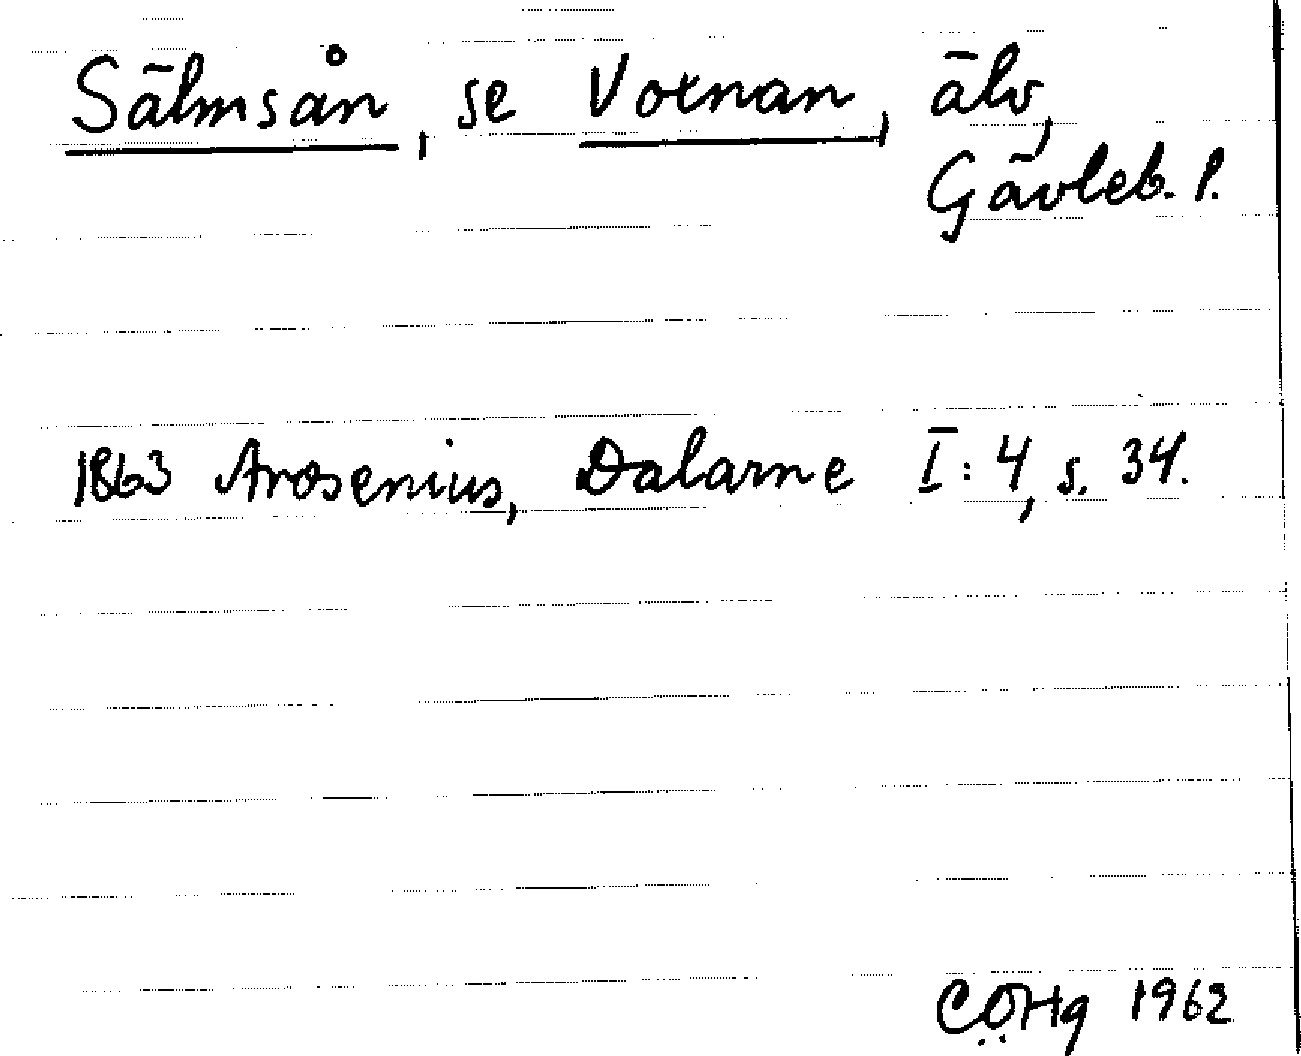 Sälmsån, se Voxnan, älv,
Gävleb. l.
1863 Arosenius, Dalarne I: 4, s. 34.
CÖHg 1962